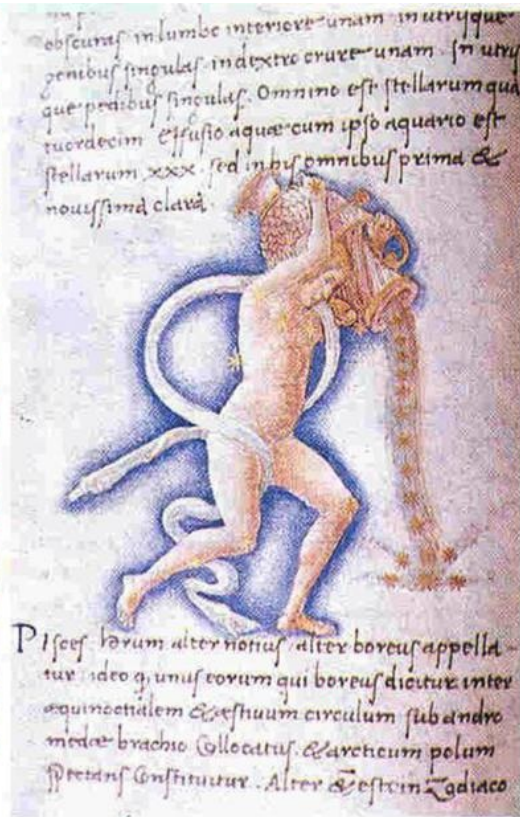 obscuras in lumbo interiore unam in utrisque
genibus singulas in dextro crure unam. In utrif
que pedibus singulas. Omnino est stellarum qua
tuordecim effusio aquæ cum ipso aquario est
stellarum xxx. sed in his omnibus prima &
novissima clara.
Pisces horum alter notius alter boreus appella-
tur ideo q; unus eorum qui boreus dicitur inter
æquinoctialem & æstivum circulum sub andro
medæ brachio Collocatus. & arcticum polum
spectans Constituitur. Alter & est in Zodiaco